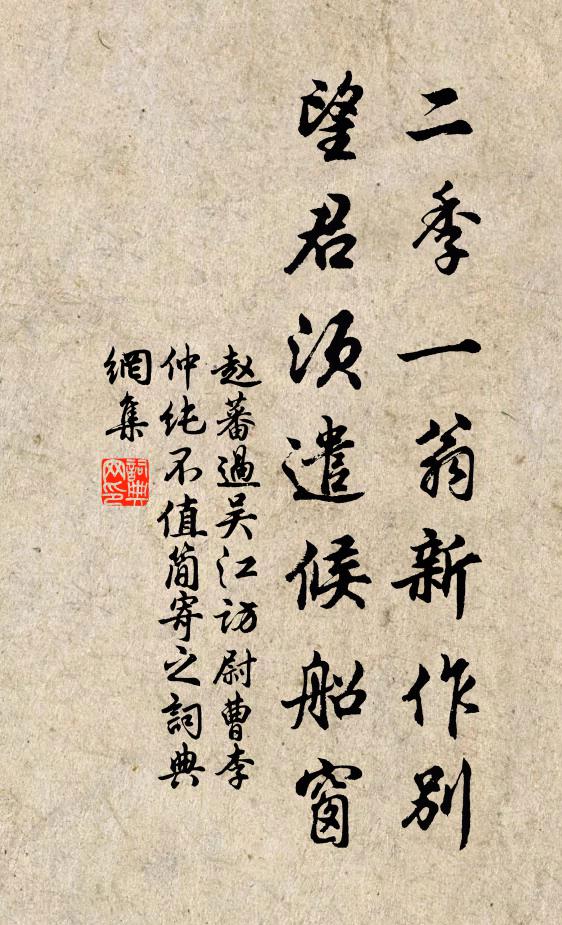 二季一翁新作别
望君须遣候船窗
赵蕃過吴江访尉曹李
仲纯不值简寄之詞典
網集
詞典
网印